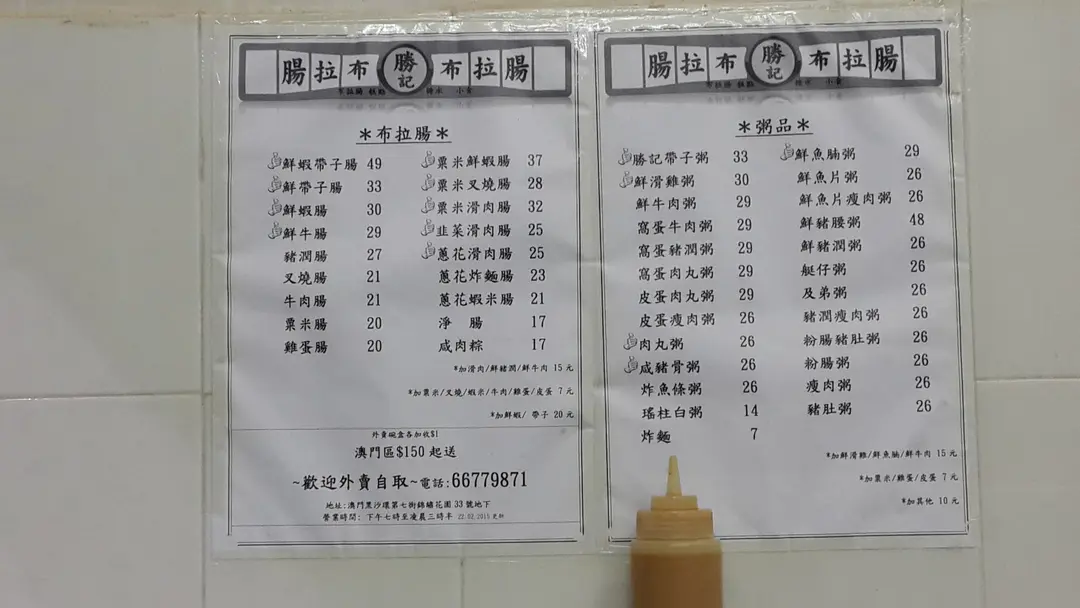 腸拉布 勝記 布拉腸
布拉腸 糕點 糖水 小食
＊布拉腸＊
鮮蝦帶子腸 49
鮮帶子腸 33
鮮蝦腸 30
鮮牛腸 29
豬潤腸 27
叉燒腸 21
牛肉腸 21
粟米腸 20
雞蛋腸 20
粟米鮮蝦腸 37
粟米叉燒腸 28
粟米滑肉腸 32
韭菜滑肉腸 25
蔥花滑肉腸 25
蔥花炸麵腸 23
蔥花蝦米腸 21
淨 腸 17
咸肉粽 17
*加滑肉/鮮豬潤/鮮牛肉 15 元
*加粟米/叉燒/蝦米/牛肉/雞蛋/皮蛋 7 元
*加鮮蝦/ 帶子 20 元
外賣碗盒各加收$1
澳門區$150 起送
~歡迎外賣自取~電話:66779871
地址:澳門黑沙環第七街錦繡花園 33 號地下
營業時間: 下午七時至凌晨三時半 22.02.2015 更新
腸拉布 勝記 布拉腸
布拉腸 糕點 糖水 小食
＊粥品＊
勝記帶子粥 33
鮮滑雞粥 30
鮮牛肉粥 29
窩蛋牛肉粥 29
窩蛋豬潤粥 29
窩蛋肉丸粥 29
皮蛋肉丸粥 29
皮蛋瘦肉粥 26
肉丸粥 26
咸豬骨粥 26
炸魚條粥 26
瑤柱白粥 14
炸麵 7
鮮魚腩粥 29
鮮魚片粥 26
鮮魚片瘦肉粥 26
鮮豬腰粥 48
鮮豬潤粥 26
艇仔粥 26
及弟粥 26
豬潤瘦肉粥 26
粉腸豬肚粥 26
粉腸粥 26
瘦肉粥 26
豬肚粥 26
*加鮮滑雞/鮮魚腩/鮮牛肉 15 元
*加粟米/雞蛋/皮蛋 7 元
*加其他 10 元